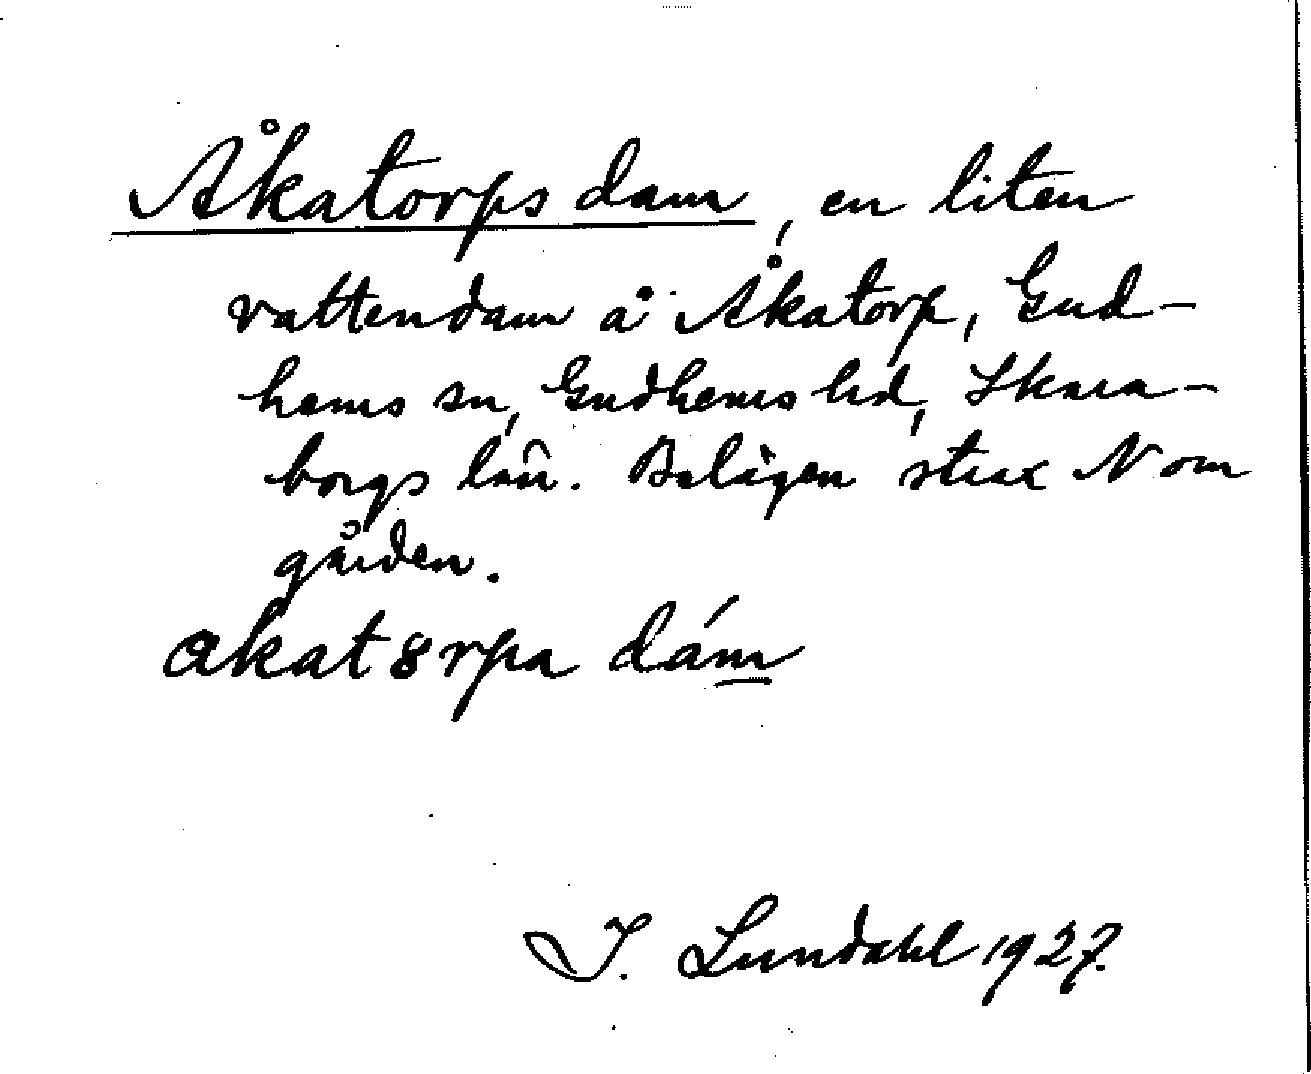 Åkatorps dam, en liten
vattendam å Åkatorp, Gud-
hems sn, Gudhems hd, Skara-
borgs län. Belägen strax N om
gården.
åkat8rpa dám
I. Lundahl 1927.